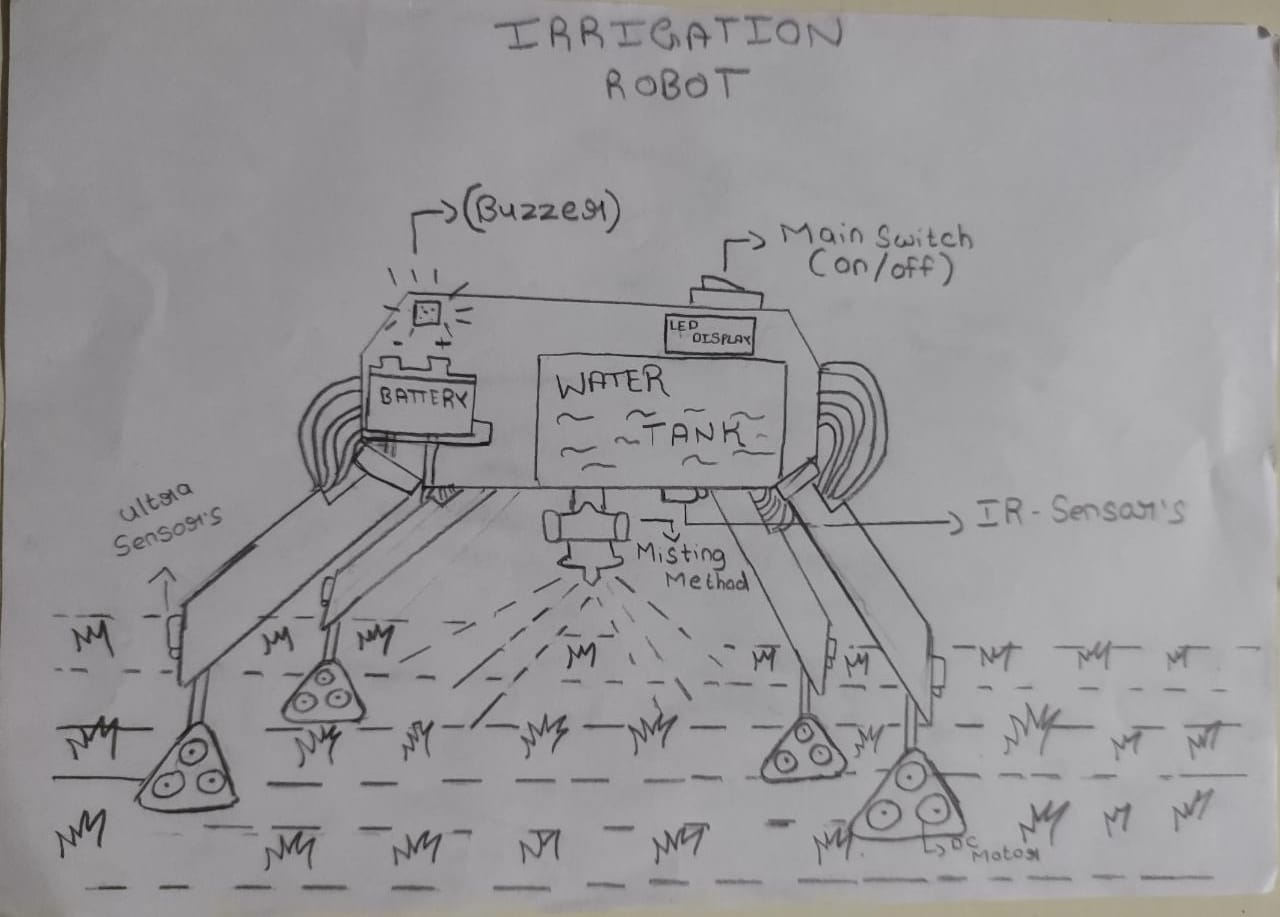 IRRIGATION
ROBOT
(Buzzer)
Main Switch
(on/off)
LED
DISPLAY
- +
BATTERY
WATER
TANK
Ultra
Sensors
IR-Sensar's
Misting
Method
DC
Motor